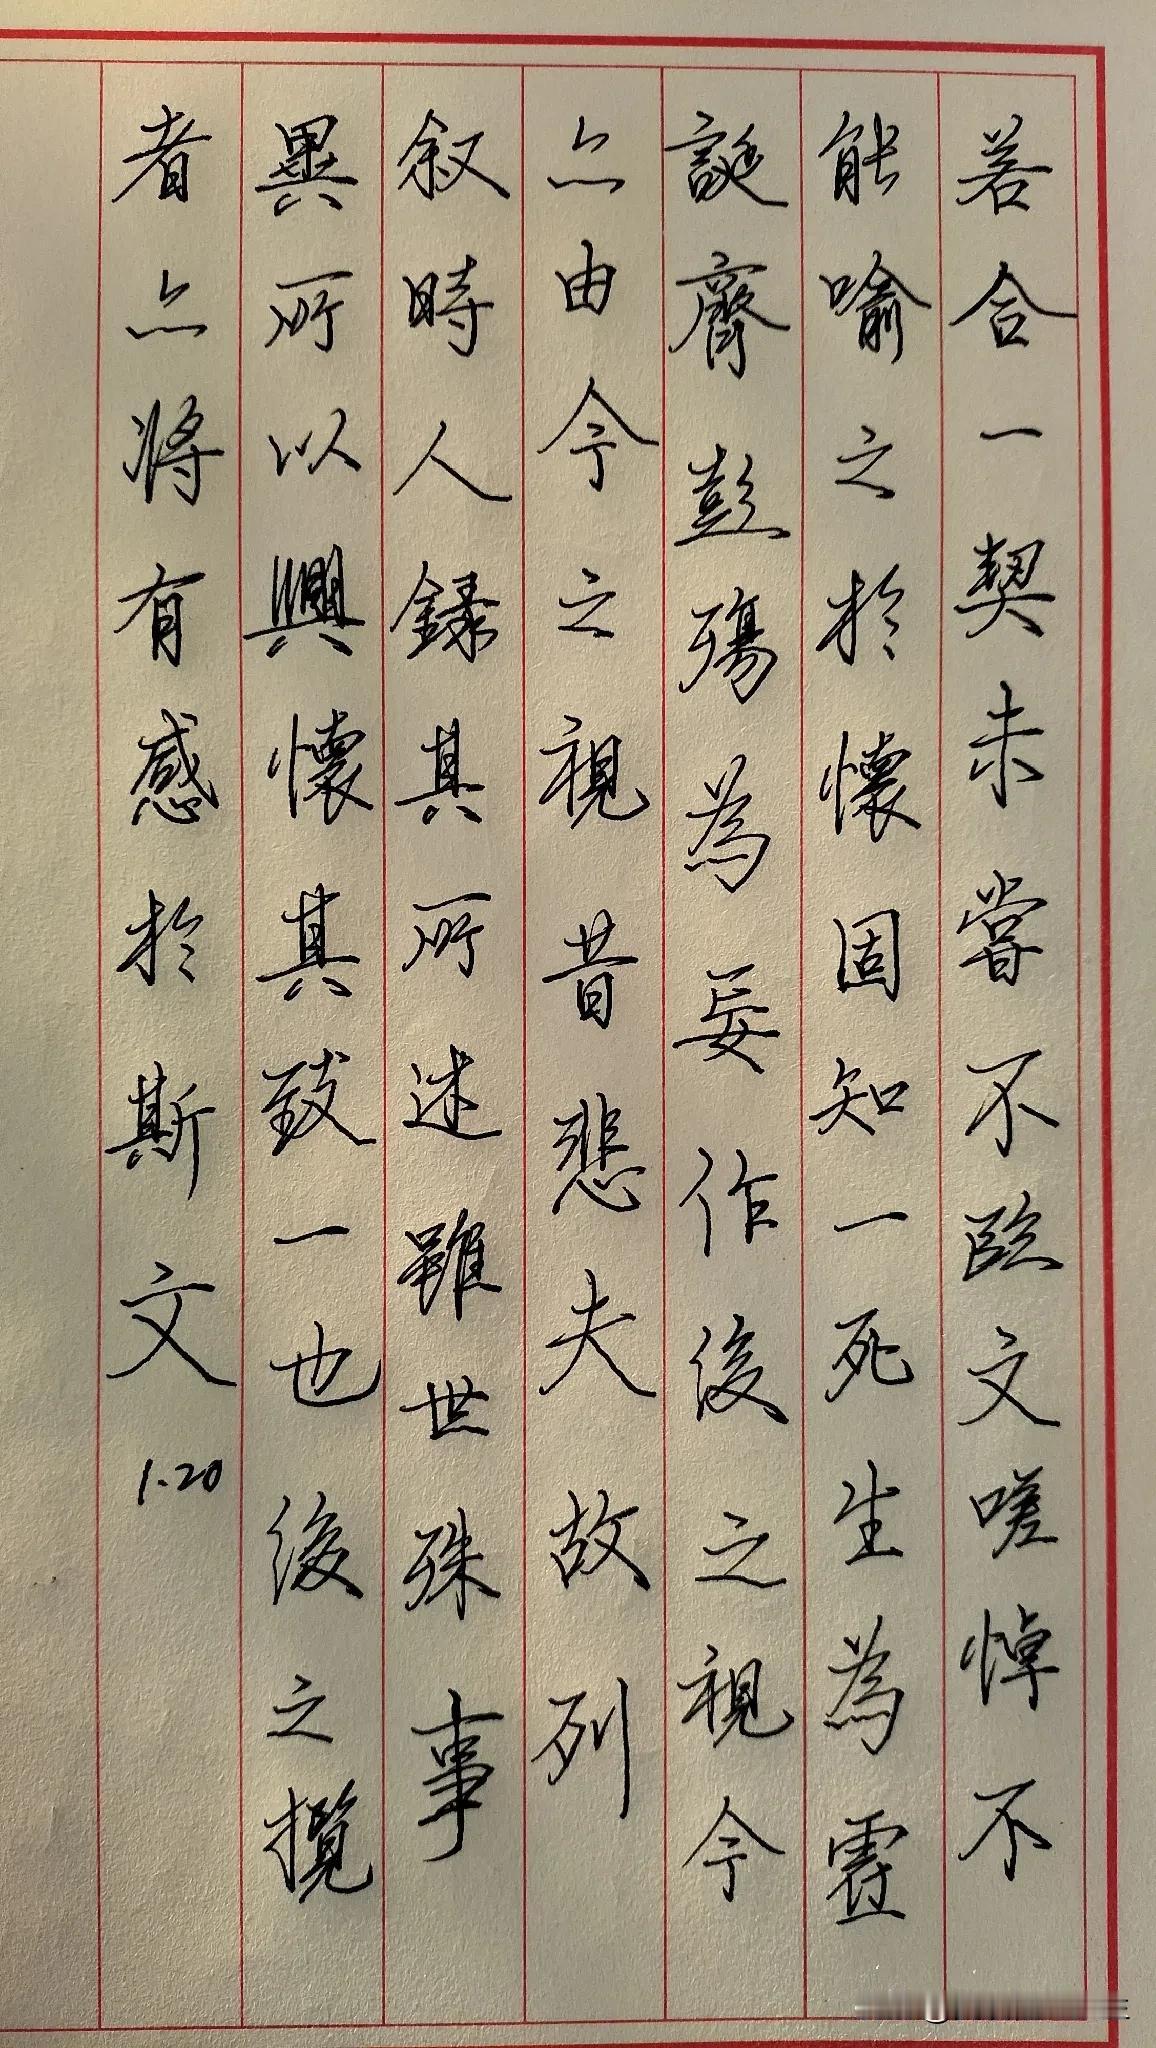 若合一契未嘗不臨文嗟悼不
能喻之於懷固知一死生為虛
誕齊彭殤為妄作後之視今
亦由今之視昔悲夫故列
叙時人錄其所述雖世殊事
異所以興懷其致一也後之攬
者亦將有感於斯文
1.20